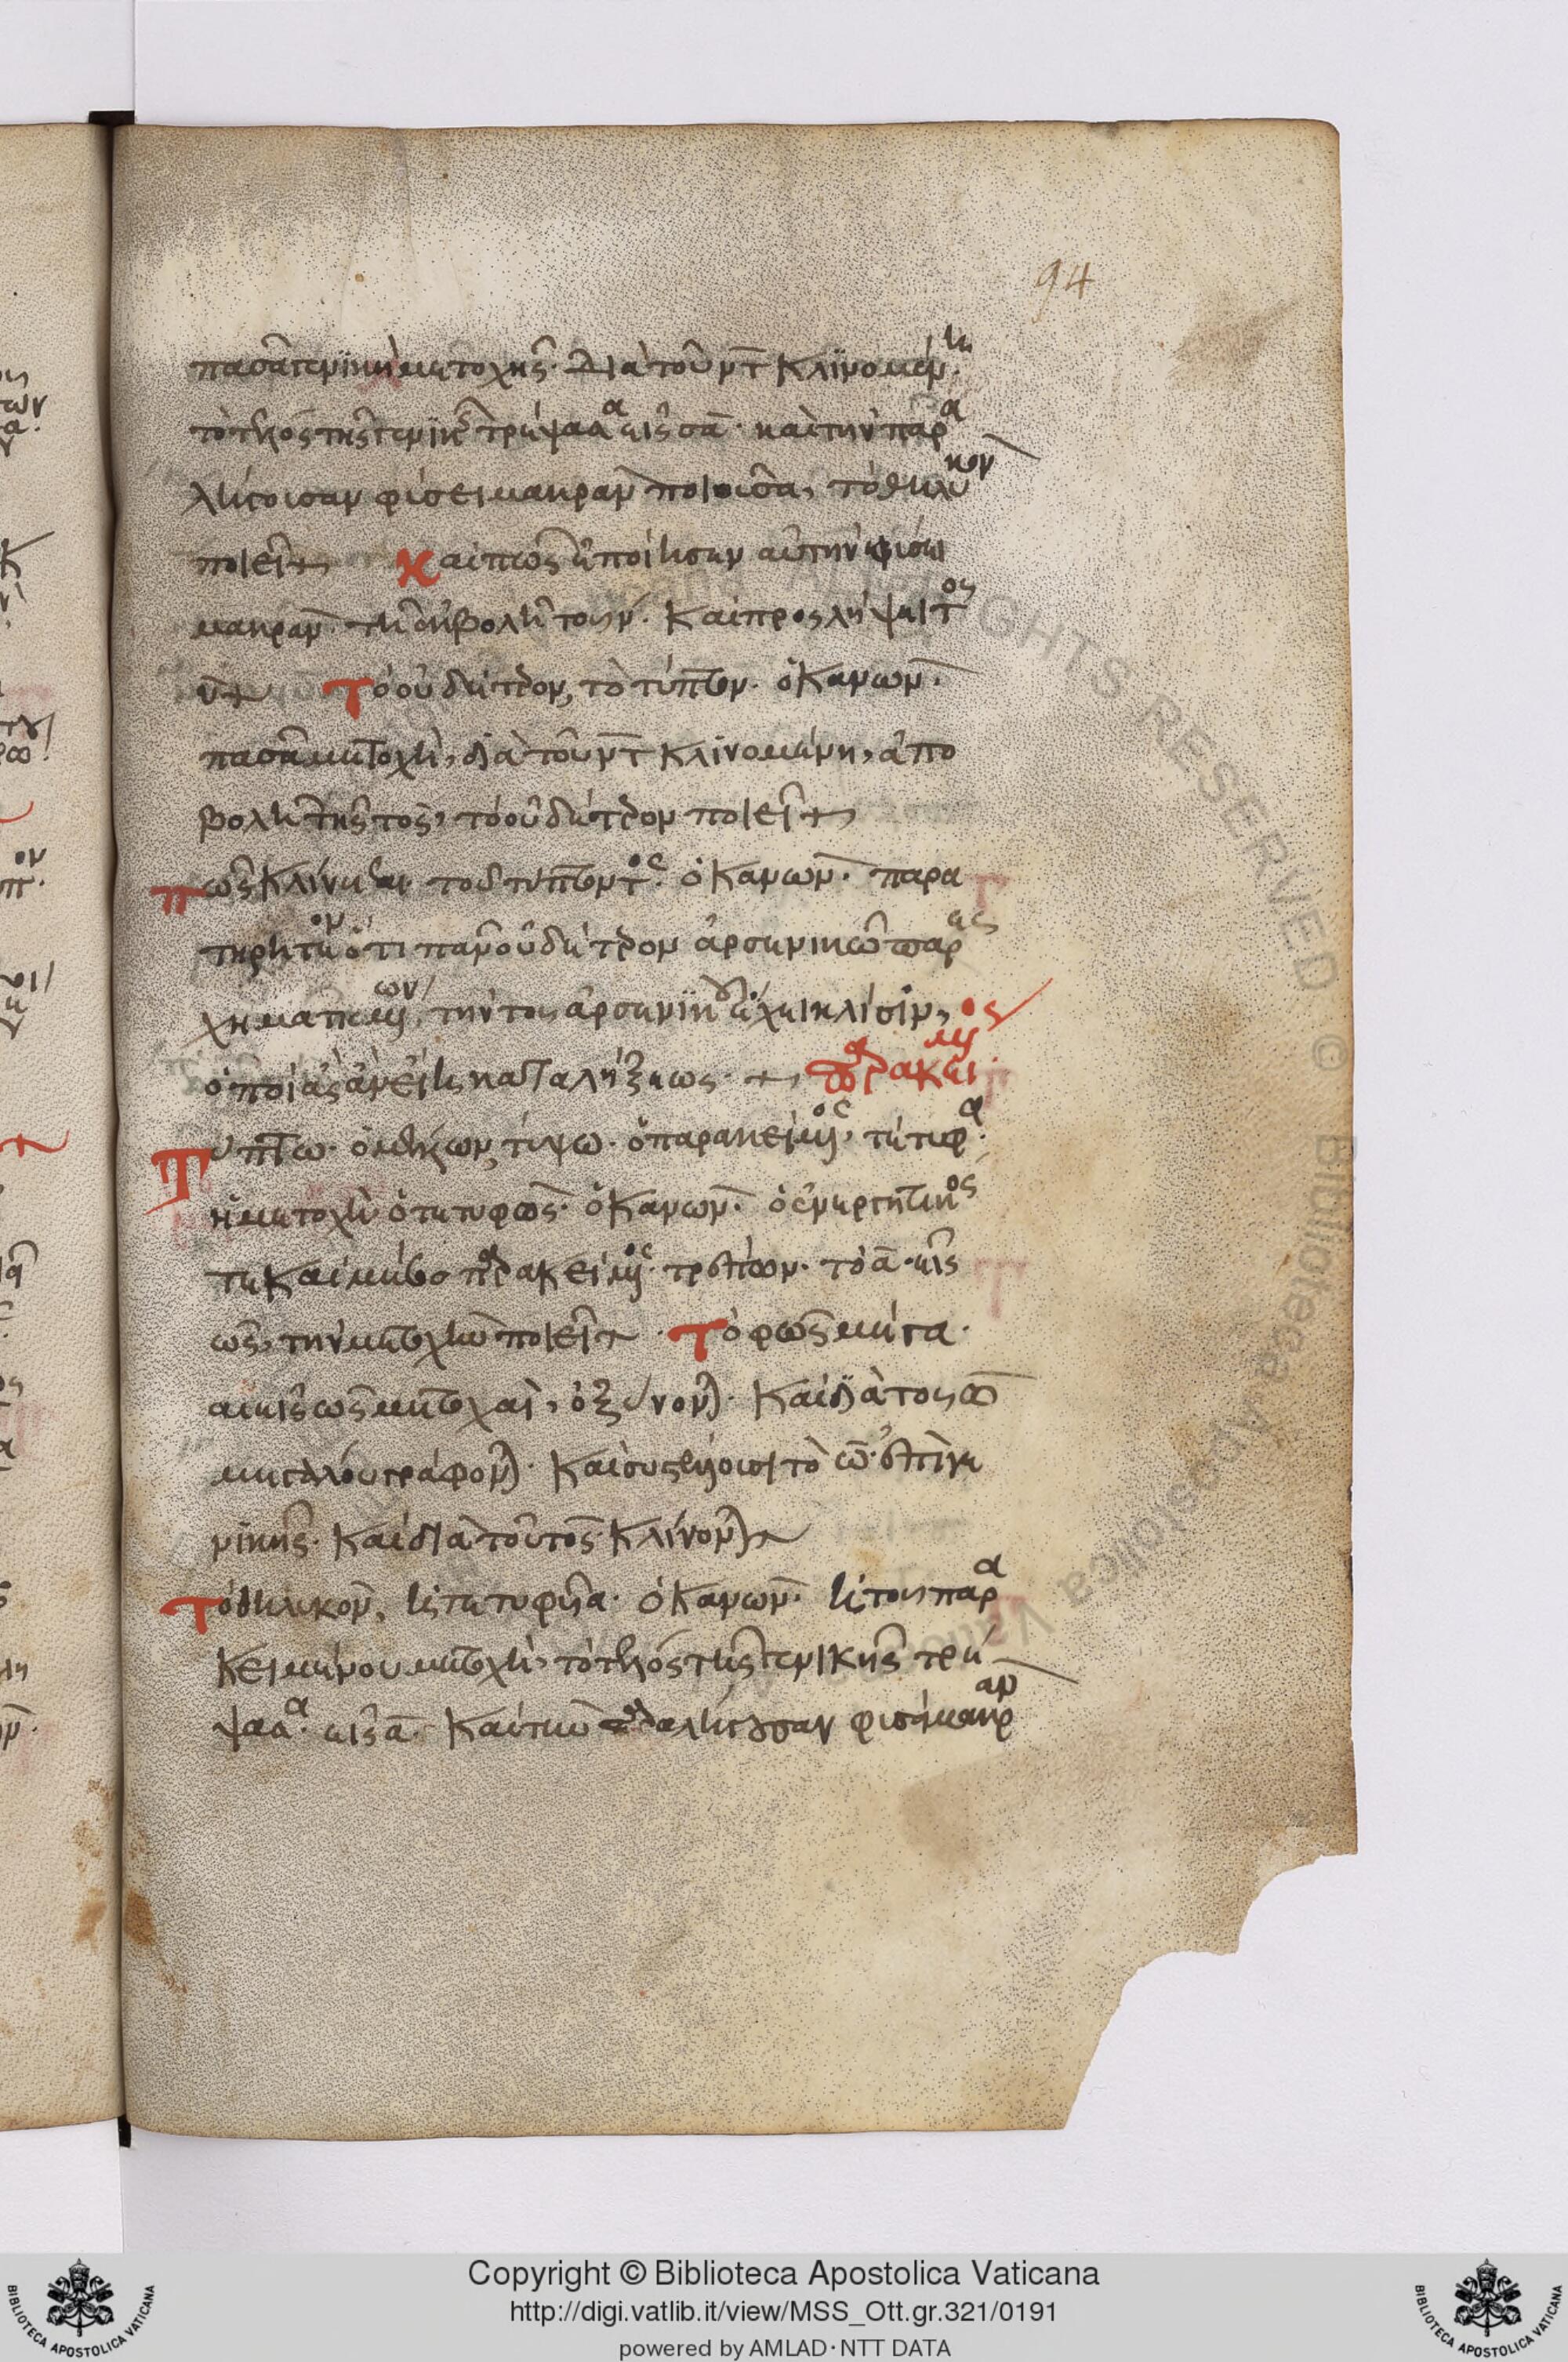 94
πᾶσα γενικὴ μετοχῆς· διὰ τοῦ ντ κλινομένη·
τὸ τέλος τῆς γενικῆς τρέψασα εἰς σα· καὶ τὴν παρα
λήγουσαν φύσει μακρὰν ποιοῦσα, τὸ θηλυκὸν
ποιεῖ
Καὶ πῶς ἐποίησεν αὐτὴν φύσει
μακράν· τῇ ἐκβολῇ τοῦ ν· Καὶ προσλήψει τοῦ
υ
Τὸ οὐδέτερον, τὸ τύπτον· ὁ Κανών·
πᾶσα μετοχὴ, διὰ τοῦ ντ κλινομένη, ἀπο
βολῇ τῆς τος, τὸ οὐδέτερον ποιεῖ
πῶς Κλίνεται· τοῦ τύπτοντος· ὁ Κανών· παρα
τηρητέον ὅτι πᾶν οὐδέτερον ἀρσενικῷ παρε
σχηματισμένον, τὴν τοῦ ἀρσενικοῦ ἔχει κλίσιν,
ὁποίας ἂν εἴη καταλήξεως· παρακείμενος
Τύπτω· ὁ μέλλων, τύψω· ὁ παρακείμενος, τέτυφα·
ἡ μετοχὴ ὁ τετυφώς· ὁ Κανών· ὁ ἐνεργητικός
τε καὶ μέσος παρακείμενος· τρέπων· τὸ α· εἰς
ως, τὴν μετοχὴν ποιεῖ
Τὸ φῶς μέγα·
αἱ εἰς ως μετοχαὶ, ὀξύνονται· Καὶ διὰ τοῦ ω
μεγάλου γράφονται· Καὶ συστέλλουσι τὸ ω· ἐπὶ γε
νικῆς· Καὶ διὰ τοῦ τος Κλίνονται
Τὸ θηλυκὸν, ἡ τετυφυῖα· ὁ Κανών· ἡ τοῦ παρα
Κειμένου μετοχὴ, τὸ τέλος τῆς γενικῆς τρέ
ψασα· εἰς α· Καὶ τὴν παραλήγουσαν φύσει μακρὰν
Copyright © Biblioteca Apostolica Vaticana
http://digi.vatlib.it/view/MSS_Ott.gr.321/0191
powered by AMLAD · NTT DATA
BIBLIOTECA APOSTOLICA VATICANA
BIBLIOTECA APOSTOLICA VATICANA